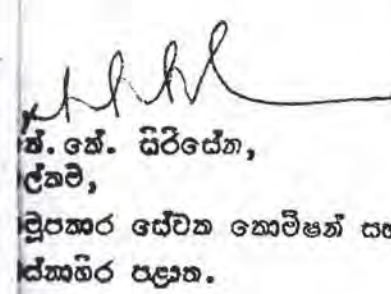 කේ. සිරිසේන,
ල්කම්,
මූපකාර සේවක කොමිෂන් සභ
ස්නාහිර පළාත.